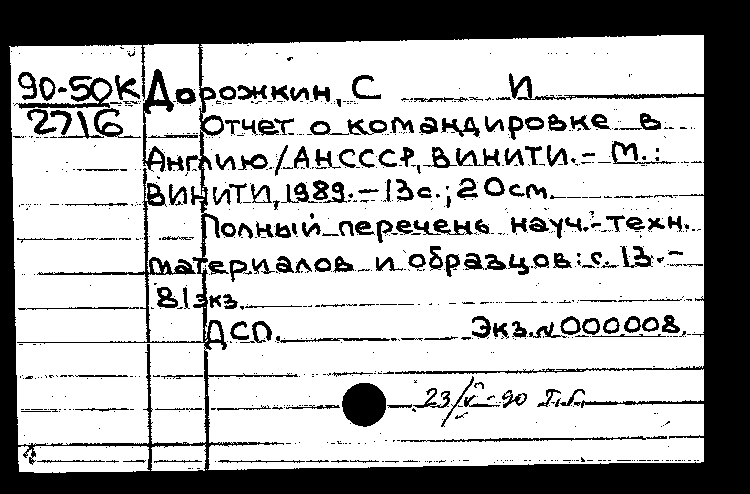 90-50К Дорожкин, С И
2716 Отчет о командировке в
Англию/АНСССР, ВИНИТИ.- М.:
ВИНИТИ, 1989.-13с.; 20см.
Полный перечень науч.-техн.
материалов и образцов: с. 13.-
81экз.
ДСП. Экз.№000008.
23/V-90